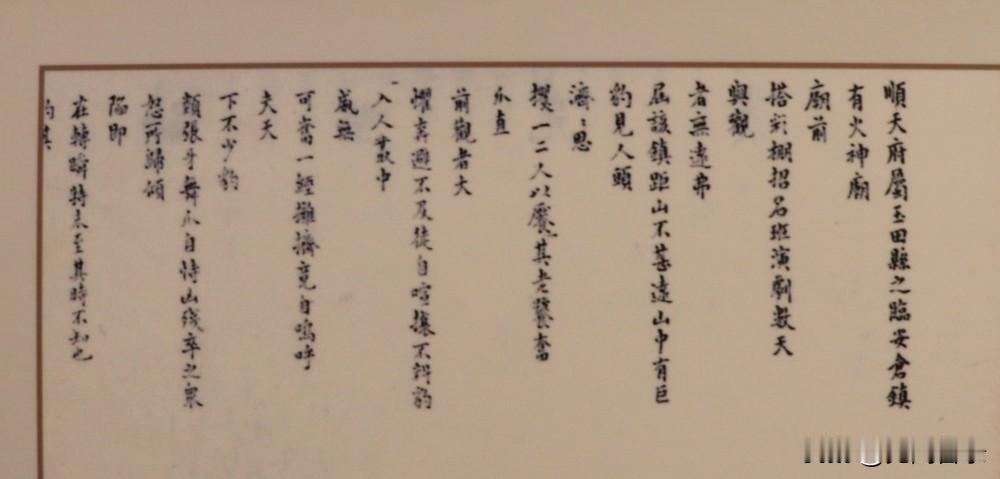 順天府屬玉田縣之臨安倉鎮
有火神廟
廟前
搭彩棚招名班演劇數天
與觀
者無遠弗
屆該鎮距山不甚遠山中有巨
豹見人頭
濟濟思
攫一二人以饜其老饕奮
爪直
前觀者大
懼奔避不及徒自喧攘不謂豹
一入人叢中
威無
可奮一經擁擠竟自嗚呼
夫天
下不少豹
頭張牙舞爪自恃山殘卒之眾
怒所歸傾
陷即
在轉瞬特未至其時不知也
豹其